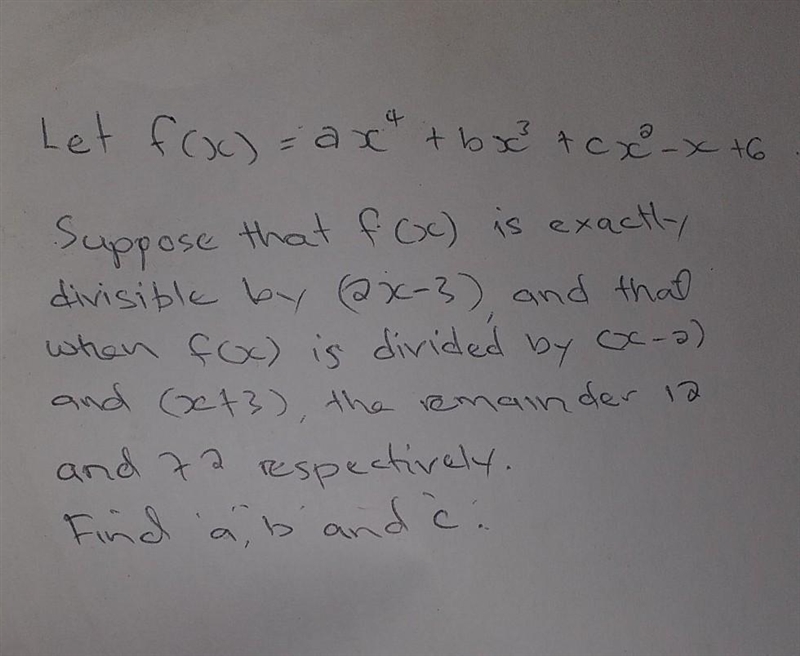 Let f(x) = ax⁴ + bx³ + cx² - x + 6.
Suppose that f(x) is exactly
divisible by (2x-3), and that
when f(x) is divided by (x-2)
and (x+3), the remainder 12
and 72 respectively.
Find 'a', 'b' and 'c'.